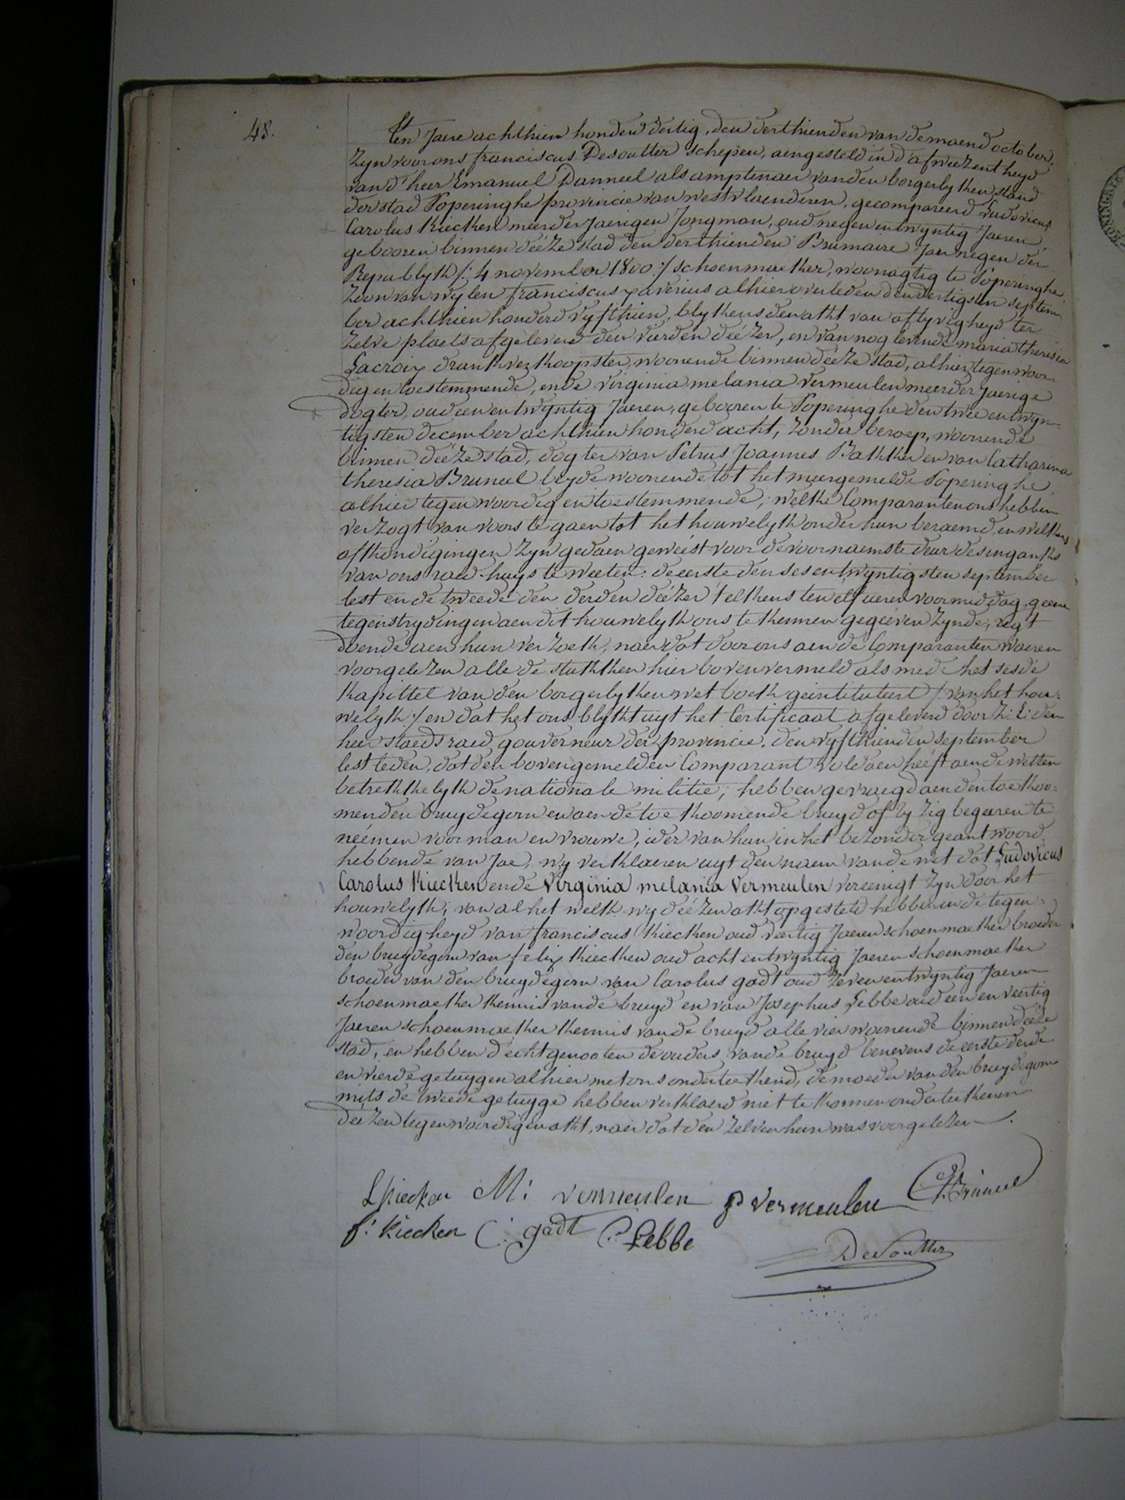 48.
Ten Jaere achthien honderd dertig, den derthienden van de maend october,
zyn voor ons franciscus Desoutter schepen, aengesteld in d'afweezentheyd
van d'heer Emanuel Danneel als amptenaer van den borgerlyken stand
der stad Poperinghe provincie van westvlaenderen, gecompareerd Ludovicus
Carolus Kiecken meerderjaerigen Jongman, oud negenentwyntig Jaeren,
gebooren binnen déeze stad den derthienden Brumaire Jaer negen der
Republyk /: 4 november 1800 :/ schoenmaeker, woonagtig te Poperinghe,
zoon van wylen franciscus xaverius alhier overleden den dertigsten septem-
ber achthien honderd vyfthien, blykens den akt van aflyvigheyd ter
zelve plaets afgeleverd den vierden déezer, en van nog levende maria theresia
Lacroix drankverkoopster, woonende binnen déeze stad, alhier tegenwoor-
dig en toestemmende, ende virginia melania vermeulen meerderjaerige
dogter, oud eenentwyntig Jaeren, gebooren te Poperinghe den tweeentwyn-
tigsten december achthien honderd acht, zonder beroep, woonende
binnen déeze stad, dogter van Petrus Joannes Bakker en van Catharina
theresia Bruneel beyde woonende tot het meergemelde Poperinghe
alhier tegenwoordig en toestemmende; welke Comparanten ons hebben
verzogt van voors te gaen tot het houwelyk onder hun beraemd en welkers
afkondigingen zyn gedaen gewéest voor de voornaemste deur des ingangks
van ons raed-huys te weeten: de eerste den sesentwyntigsten september
lest en de tweede den derden déezer telkens ten elf ueren voormiddag, geene
tegenstrydingen aen dit houwelyk ons te kennen gegéeven zynde, regt
doende aen hun verzoek, naer dat door ons aen de Comparanten waeren
voorgelezen alle de stukken hier boven vermeld als mede het sesde
kapittel van den borgerlyken wet boek geintituleert /van het hou-
welyk/ en dat het ons blykt uyt het Certificaat afgeleverd door Z: E: den
heer staedsraed gouverneur der provincie, den vyfthienden september
lestleden, dat den bovengemelden Comparant voldaen héeft aen de wetten
betrekkelyk de nationale militie; hebben gevraegd aen den toekoo-
menden bruydegom en aen de toekoomende bruyd of zy zig begeeren te
néemen voor man en vrouwe, ider van hun in het bezonder geantwoord
hebbende van Jae, wy verklaeren uyt den naem van de wet dat Ludovicus
Carolus Kiecken ende Virginia melania Vermeulen vereenigt zyn door het
houwelyk; van al het welk wy déezen akt opgesteld hebben in de tegen-
woordigheyd van franciscus Kiecken oud veertig Jaeren schoenmaeker broeder
den bruydegom van felix Kiecken oud achtentwyntig Jaeren schoenmaeker
broeder van den bruydegom van Carolus gadt oud zevenentwyntig Jaeren
schoenmaeker kennis van de bruyd en van Josephus Lebbe oud eenenveertig
Jaeren schoenmaeker kennis van de bruyd alle vier woonende binnen déeze
stad, en hebben d'echtgenooten de ouders van de bruyd benevens de eerste derde
en vierde getuygen alhier met ons onderteekend, de moeder van den bruydegom
mits de tweede getuyge hebben verklaerd niet te konnen onderteekenen
déezen tegenwoordigen akt, naer dat den zelven hun was voorgelezen.
L Kiecken M: vermeulen P vermeulen C Bruneel
f: Kiecken C: gadt P: Lebbe
Desoutter